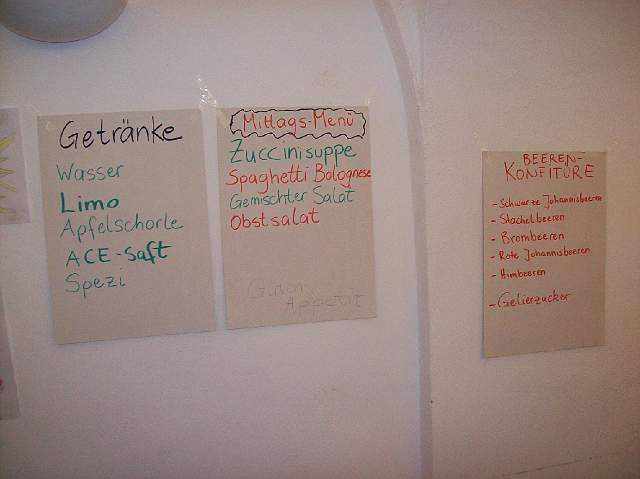 Getränke
Wasser
Limo
Apfelschorle
ACE-Saft
Spezi
Mittags-Menü
Zuccinisuppe
Spaghetti Bolognese
Gemischter Salat
Obstsalat
Guten
Appetit
BEEREN-
KONFITÜRE
- Schwarze Johannisbeeren
- Stachelbeeren
- Brombeeren
- Rote Johannisbeeren
- Himbeeren
- Gelierzucker